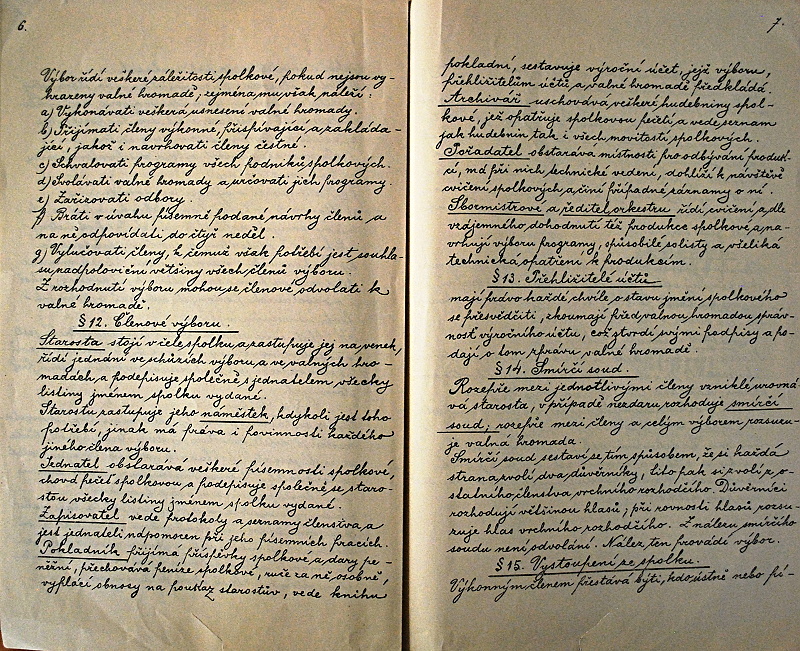 6.
Výbor řídí veškeré záležitosti spolkové, pokud nejsou vy-
hrazeny valné hromadě, zejména mu však náleží:
a) Vykonávati veškerá usnesení valné hromady.
b) Přijímati členy výkonné, přispívající a zakláda-
jící, jakož i navrhovati členy čestné.
c) Schvalovati programy všech podniků spolkových.
d) Svolávati valné hromady a určovati jich programy.
e) Zařizovati odbory.
f) Bráti v úvahu písemně podané návrhy členů a
na ně odpovídati do čtyř neděl.
g) Vylučovati členy, k čemuž však potřebí jest souhla-
su nadpoloviční většiny všech členů výboru.
Z rozhodnutí výboru mohou se členové odvolati k
valné hromadě.
§ 12. Členové výboru.
Starosta stojí v čele spolku a zastupuje jej na venek,
řídí jednání ve schůzích výboru a ve valných hro-
madách, a podepisuje společně s jednatelem všecky
listiny jménem spolku vydané.
Starostu zastupuje jeho náměstek, kdykoli jest toho
potřebí, jinak má práva i povinnosti každého
jiného člena výboru.
Jednatel obstarává veškeré písemnosti spolkové,
chová pečeť spolkovou a podepisuje společně se staro-
stou všecky listiny jménem spolku vydané.
Zapisovatel vede protokoly a seznamy členstva a
jest jednateli nápomocen při jeho písemních pracích.
Pokladník přijímá příspěvky spolkové a dary pe-
něžní, přechovává peníze spolkové, ručě za ně osobně,
vyplácí obnosy na poukaz starostův, vede knihu
7.
pokladní, sestavuje výroční účet, jejž výboru,
přehlížitelům účtů a valné hromadě předkládá.
Archivář uschovává veškeré hudebniny spol-
kové, jež opatřuje spolkovou pečetí a vede seznam
jak hudebnin, tak i všech movitostí spolkových.
Pořadatel obstarává místnosti pro odbývání produk-
cí, má při nich technické vedení, dohlíží k návštěvě
cvičení spolkových a činí případné záznamy o ní.
Sbormistrové a ředitel orkestru řídí cvičení a dle
vzájemného dohodnutí též produkce spolkové, a na-
vrhují výboru programy, způsobilé solisty a všeliká
technická opatření k produkcím.
§ 13. Přehlížitelé účtů
mají právo každé chvíle o stavu jmění spolkového
se přesvědčiti, zkoumají před valnou hromadou správ-
nost výročního účtu, což stvrdí svými podpisy a po-
dají o tom zprávu valné hromadě.
§ 14. Smírčí soud.
Rozepře mezi jednotlivými členy vzniklé urovná-
vá starosta, v případě nezdaru rozhoduje smírčí
soud; rozepře mezi členy a celým výborem rozsuzu-
je valná hromada.
Smírčí soud sestaví se tím způsobem, že si každá
strana zvolí dva důvěrníky; tito pak si zvolí z o-
statního členstva vrchního rozhodčího. Důvěrníci
rozhodují většinou hlasů; při rovnosti hlasů rozsu-
zuje hlas vrchního rozhodčího. Z nálezu smírčího
soudu není odvolání. Nález ten provádí výbor.
§ 15. Vystoupení ze spolku.
Výkonným členem přestává býti, kdo ústně nebo pí-